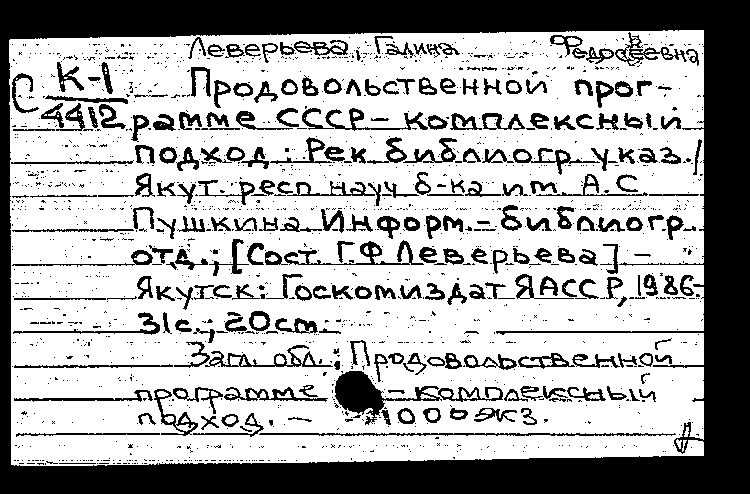 Леверьева, Галина Федосеевна
С К-1 Продовольственной прог-
4412 рамме СССР – комплексный
подход : Рек. библиогр. указ. /
Якут. респ. науч. б-ка им. А.С.
Пушкина. Информ.-библиогр.
отд.; [Сост. Г.Ф. Леверьева] –
Якутск: Госкомиздат ЯАССР, 1986.-
31с.; 20см.
Загл. обл.: Продовольственной
программе – комплексный
подход. – 100 экз.